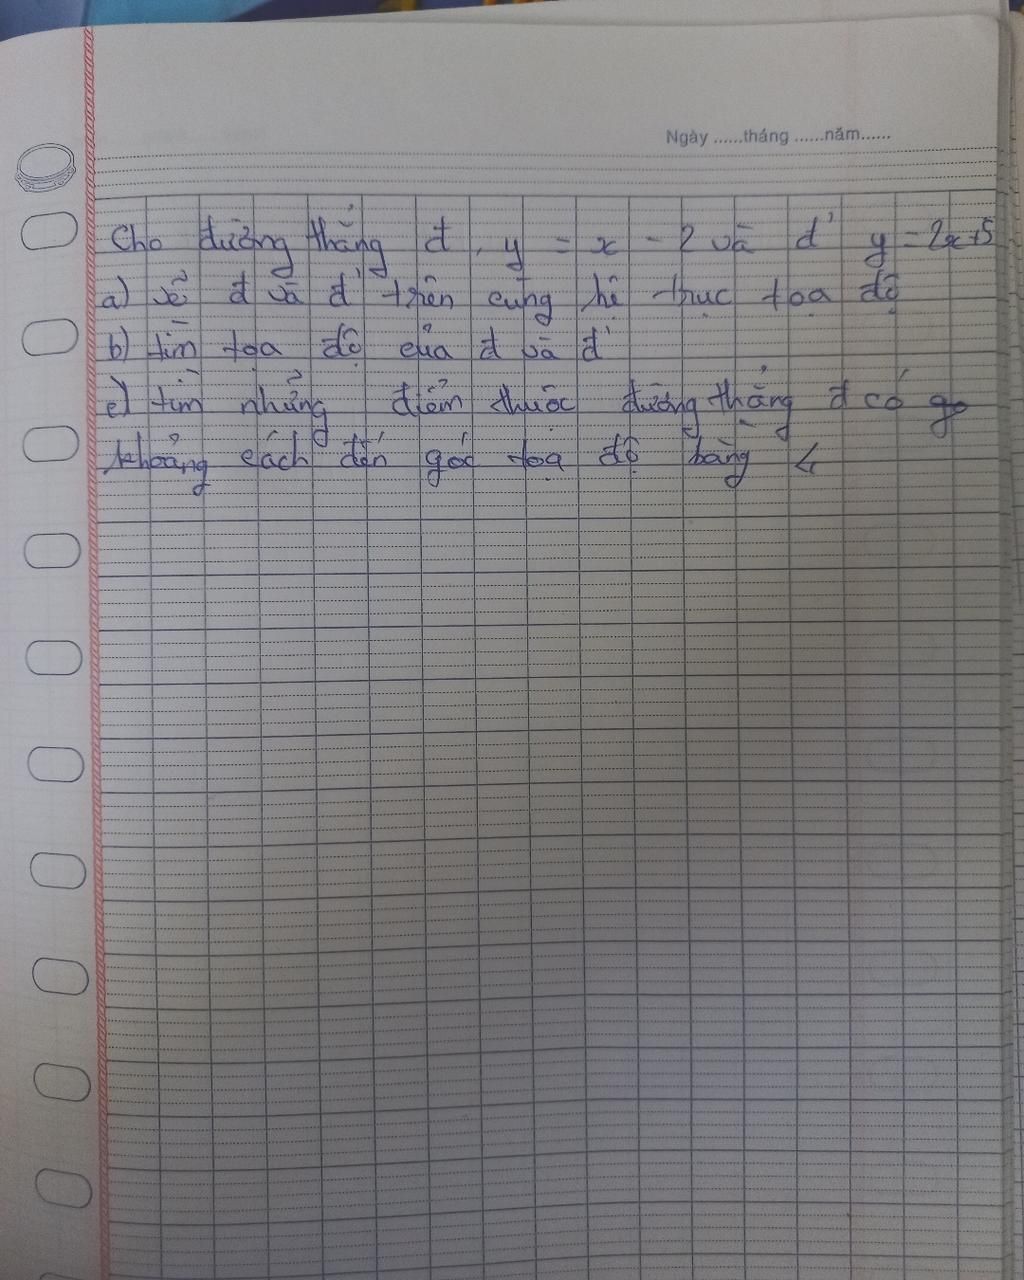 Ngày ......tháng ......năm......
Cho đường thẳng đ, y = x - 2 và đ' y = 2x+5
a) vẽ đ và đ' trên cùng hệ trục tọa độ
b) tìm tọa độ của đ và đ'
c) tìm những điểm thuộc đường thẳng đ có
khoảng cách đến gốc tọa độ bằng